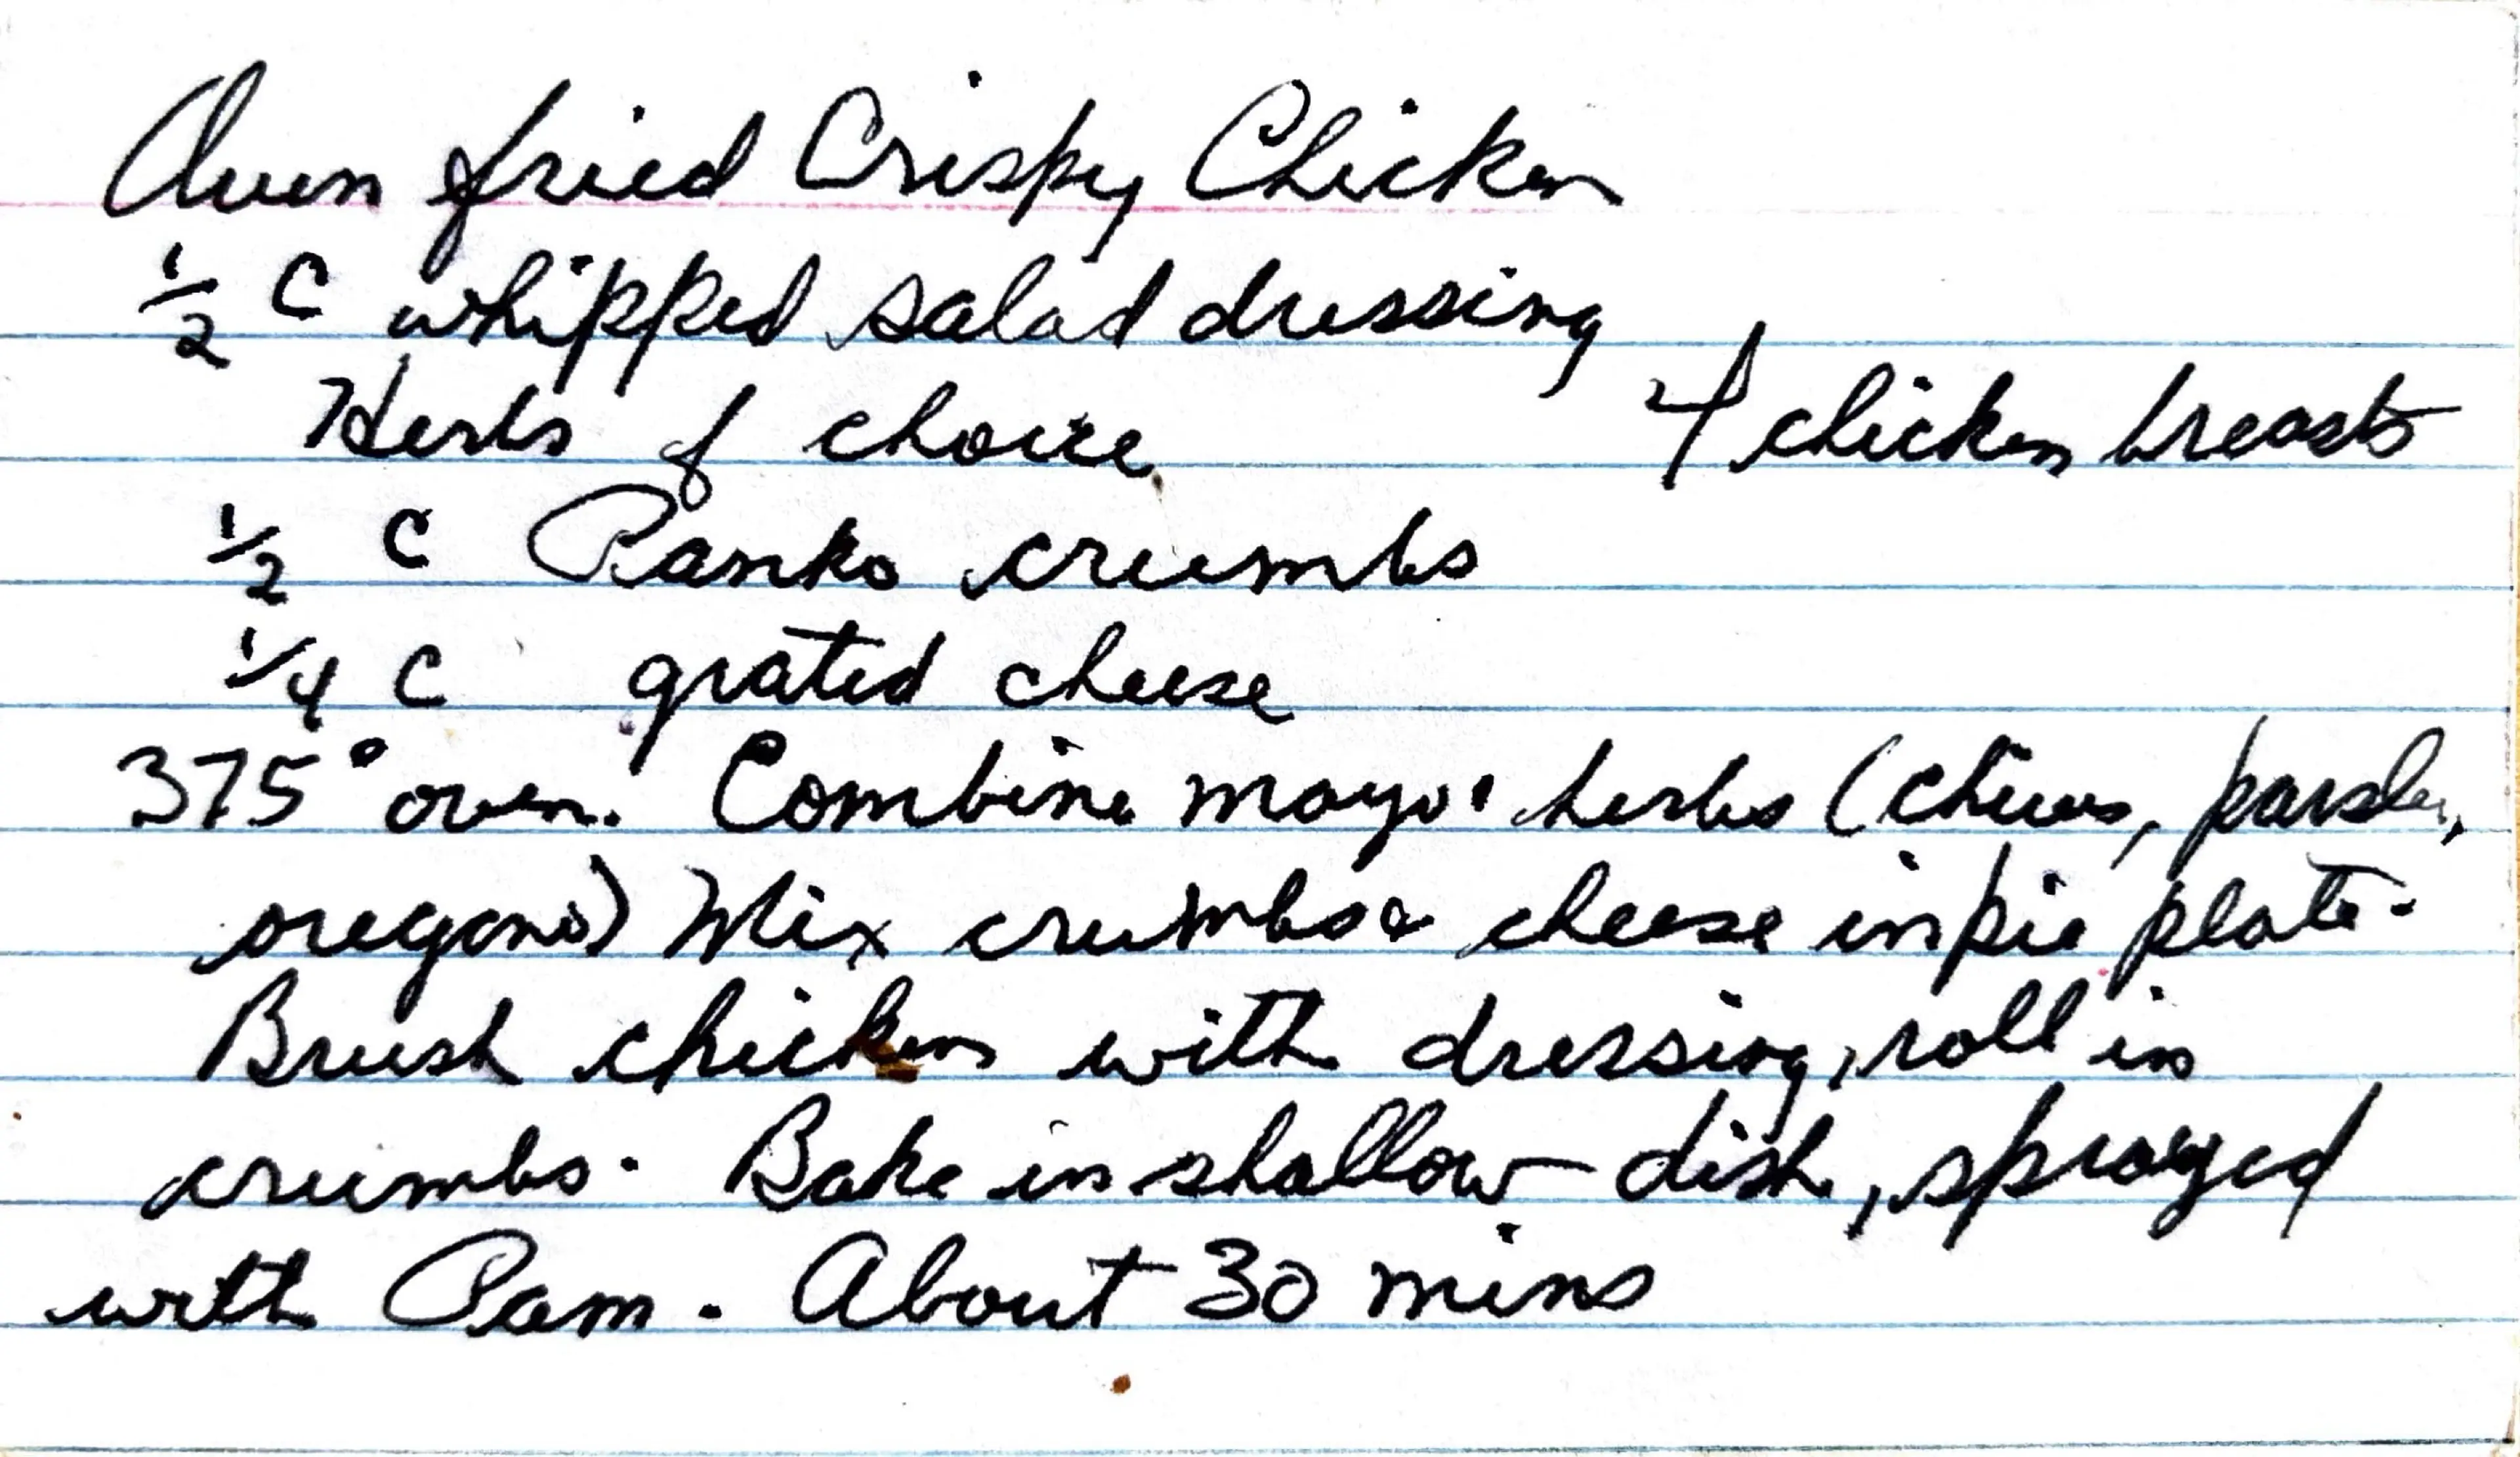 Oven fried Crispy Chicken
1/2 C whipped salad dressing
Herbs of choice
4 chicken breasts
1/2 C Panko crumbs
1/4 C grated cheese
375° oven. Combine mayo & herbs (chives, parsley,
oregano) Mix crumbs & cheese in pie plate.
Brush chicken with dressing, roll in
crumbs. Bake in shallow dish, sprayed
with Pam. About 30 mins